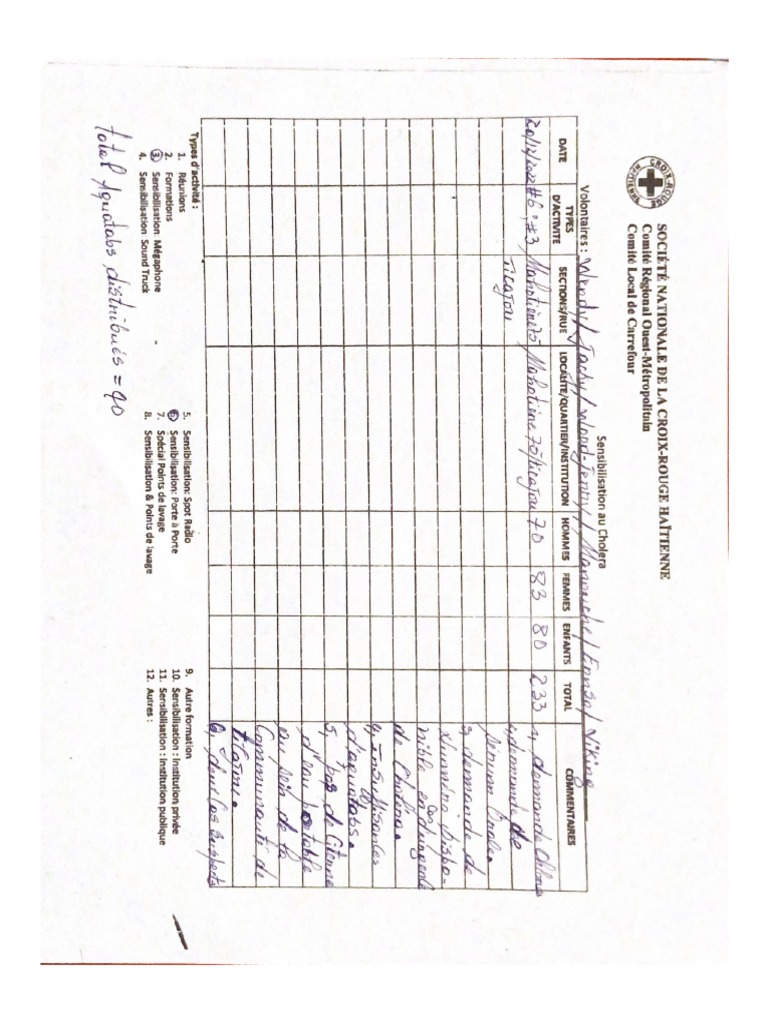 SOCIÉTÉ NATIONALE DE LA CROIX-ROUGE HAÏTIENNE
Comité Régional Ouest-Métropolitain
Comité Local de Carrefour
CROIX-ROUGE HAITIENNE
Sensibilisation au Cholera
Volontaires : Wendy / Tachy / Wood-Jenny / Mannuche / / Viking
DATE TYPES D'ACTIVITE SECTIONS/RUE LOCALITE/QUARTIER/INSTITUTION HOMMES FEMMES ENFANTS TOTAL COMMENTAIRES
#6, #3 Mahotière 75 Mahotière 75/Ticajou 70 83 80 233 1, demande Chlore
Ticajou 2, demande de
Sérum Orale.
3, demande de
Numéro dispo-
nible en cas d'urgence
de Choléra.
4, Insuffisances
d'aquatabs.
5, pas de Citerne
d'eau potable
au sein de la
Communauté de
6, deux Cas suspects
Types d'activité :
1. Réunions
2. Formations
3. Sensibilisation Mégaphone
4. Sensibilisation Sound Truck
5. Sensibilisation: Spot Radio
6. Sensibilisation: Porte à Porte
7. Spécial Points de lavage
8. Sensibilisation & Points de lavage
9. Autre formation
10. Sensibilisation : Institution privée
11. Sensibilisation : Institution publique
12. Autres :
total Aquatabs distribués = 90